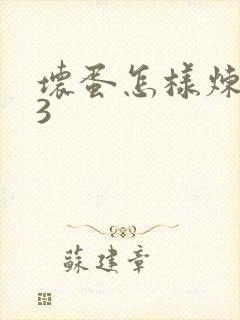 壞蛋怎樣煉
3
蘇建章